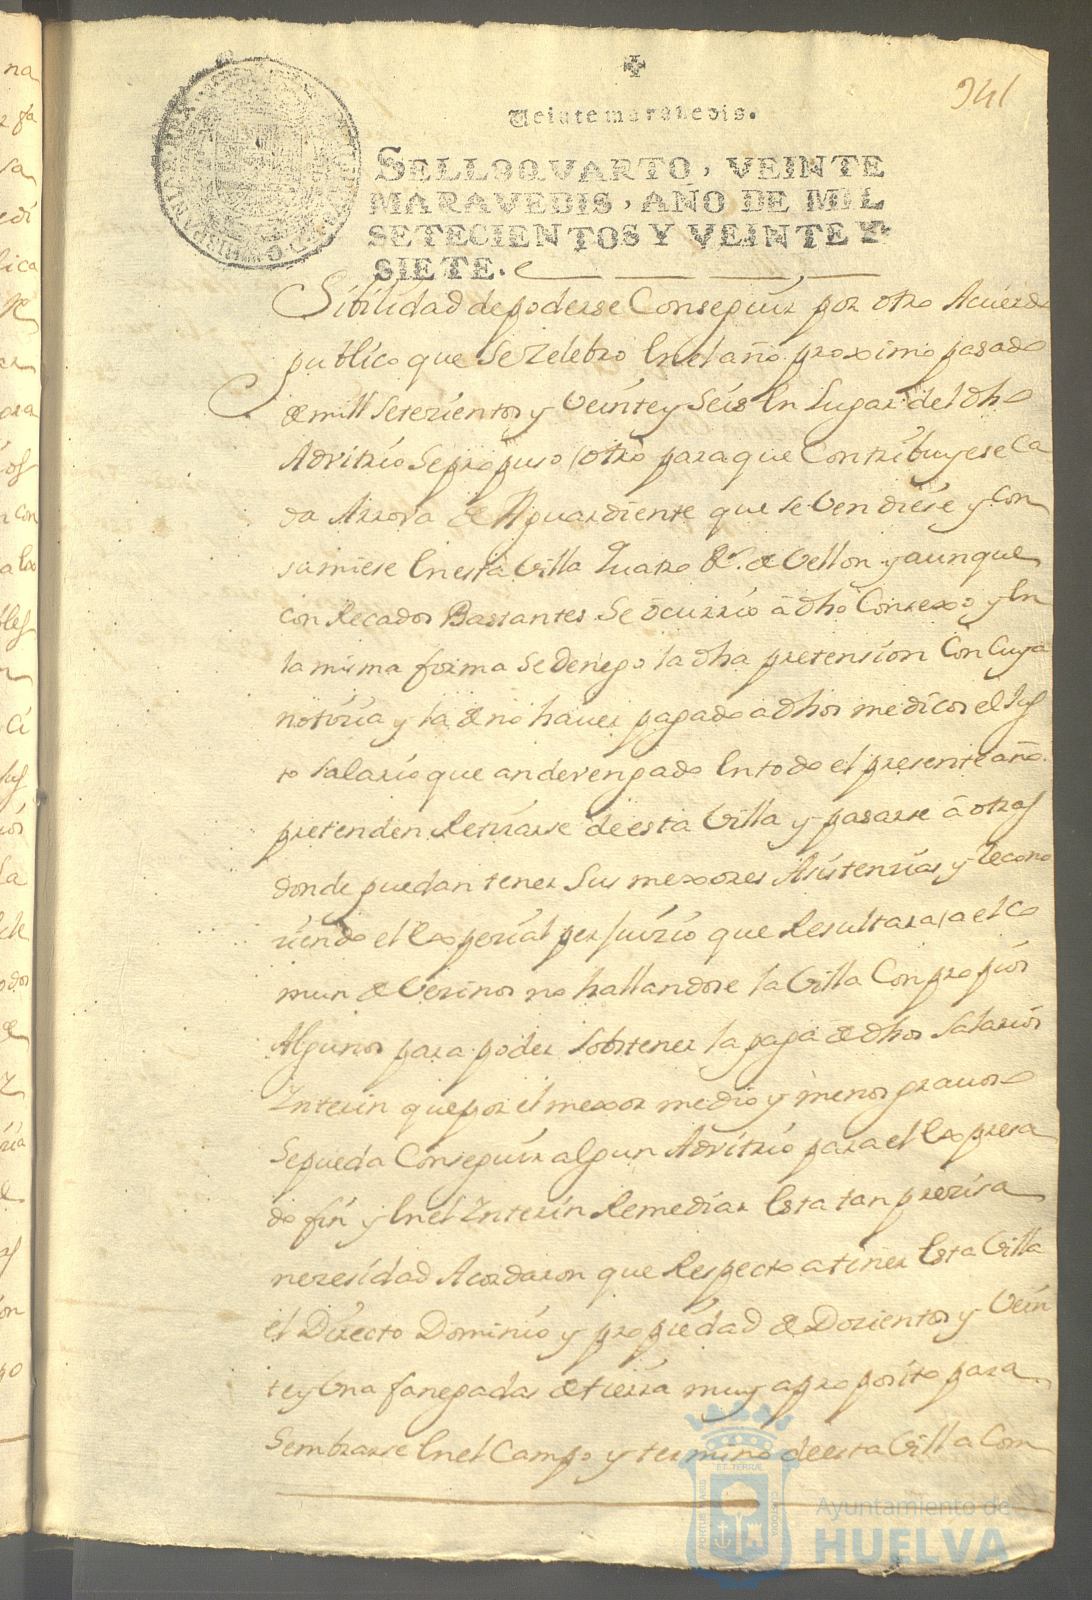 941
Veinte maravedis.
SELLO QVARTO, VEINTE
MARAVEDIS, AÑO DE MIL
SETECIENTOS Y VEINTE Y
SIETE.
Sibilidad de poderse Conseguir por otro Acuerdo
publico que se Zelebro En el año proximo pasado
de mill setezientos y Veinte y Seis En Lugar del dho
Advitrio Se propuso otro para que Contribuyese Ca
da Arrova de Aguardiente que se Vendiese y Con
sumiese En esta Villa quatro Rs. de Vellon y aunque
con Recados Bastantes Se ocurrio â dho Consexo y En
la misma forma Se denego la dha pretension Con Cuya
notizia y la de no haver pagado a dhos medicos el Jus
to salario que an devengado En todo el presente año
pretenden Retirarse de esta Villa y pasarse â otras
donde puedan tener Sus mexores Asistenzias y Recono
ziendo el Expezial perjuizio que Resultara a el Co
mun de Vezinos no hallandose la Villa Con propios
Algunos para poder obtener la paga de dhos Salarios
Interin que por el mexor medio y menos gravoso
Se pueda Conseguir algun Advitrio para el Expresa
do fin y En el Interin Remediar Esta tan preziza
nezesidad Acordaron que Respecto a tener Esta Villa
el Directo Dominio y propiedad de Dozientos y Vein
te y Una fanegadas de tierra muy a proposito para
Sembrarse En el Campo y termino de esta Villa Com
Ayuntamiento de
HUELVA